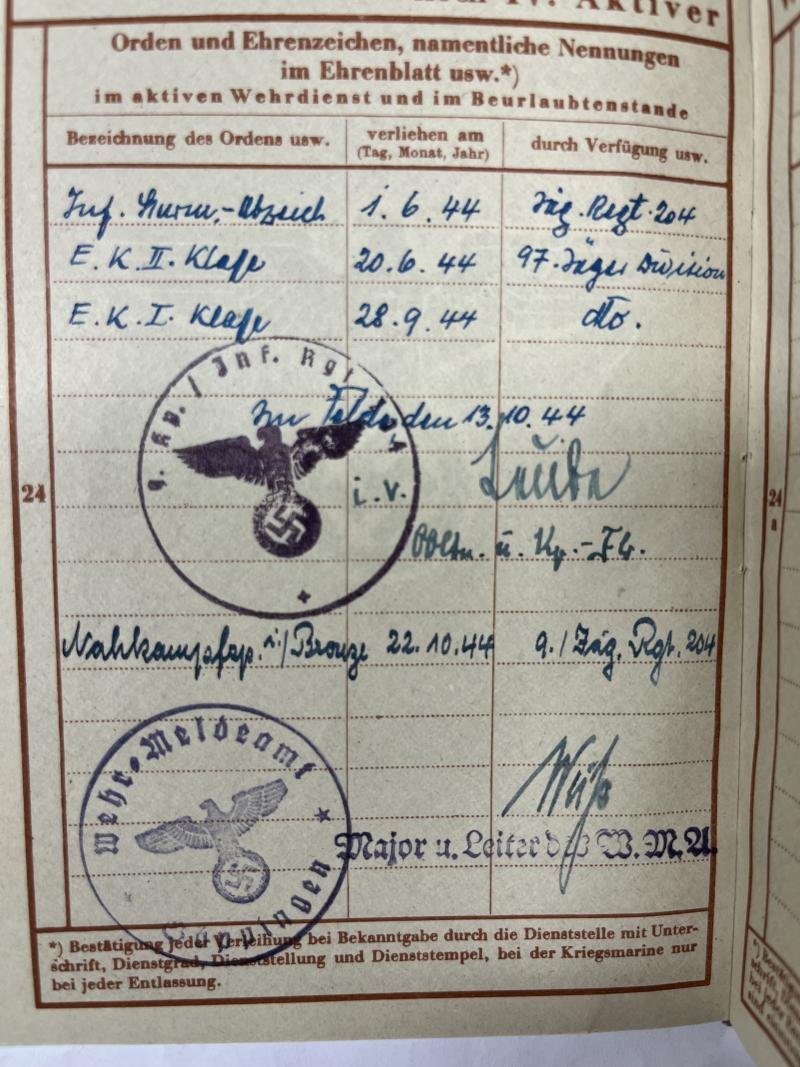 IV. Aktiver
Orden und Ehrenzeichen, namentliche Nennungen
im Ehrenblatt usw.*)
im aktiven Wehrdienst und im Beurlaubtenstande
Bezeichnung des Ordens usw. verliehen am (Tag, Monat, Jahr) durch Verfügung usw.
Inf. Sturm.-Abzeich 1. 6. 44 Jäg. Regt. 204
E. K. II. Klaße 20. 6. 44 97. Jäger Division
E. K. I. Klaße 28. 9. 44 dto.
9. Kp. / Inf. Rgt.
Im Felde den 13. 10. 44
i. V.
24
24
a
Obltn. u. Kp.-Fh.
Nahkampfsp. i/Bronze 22. 10. 44 9. / Jäg. Rgt. 204
Wehr-Meldeamt
Göppingen
Major u. Leiter des W.M.A.
*) Bestätigung jeder Verleihung bei Bekanntgabe durch die Dienststelle mit Unter-
schrift, Dienstgrad, Dienststellung und Dienststempel, bei der Kriegsmarine nur
bei jeder Entlassung.